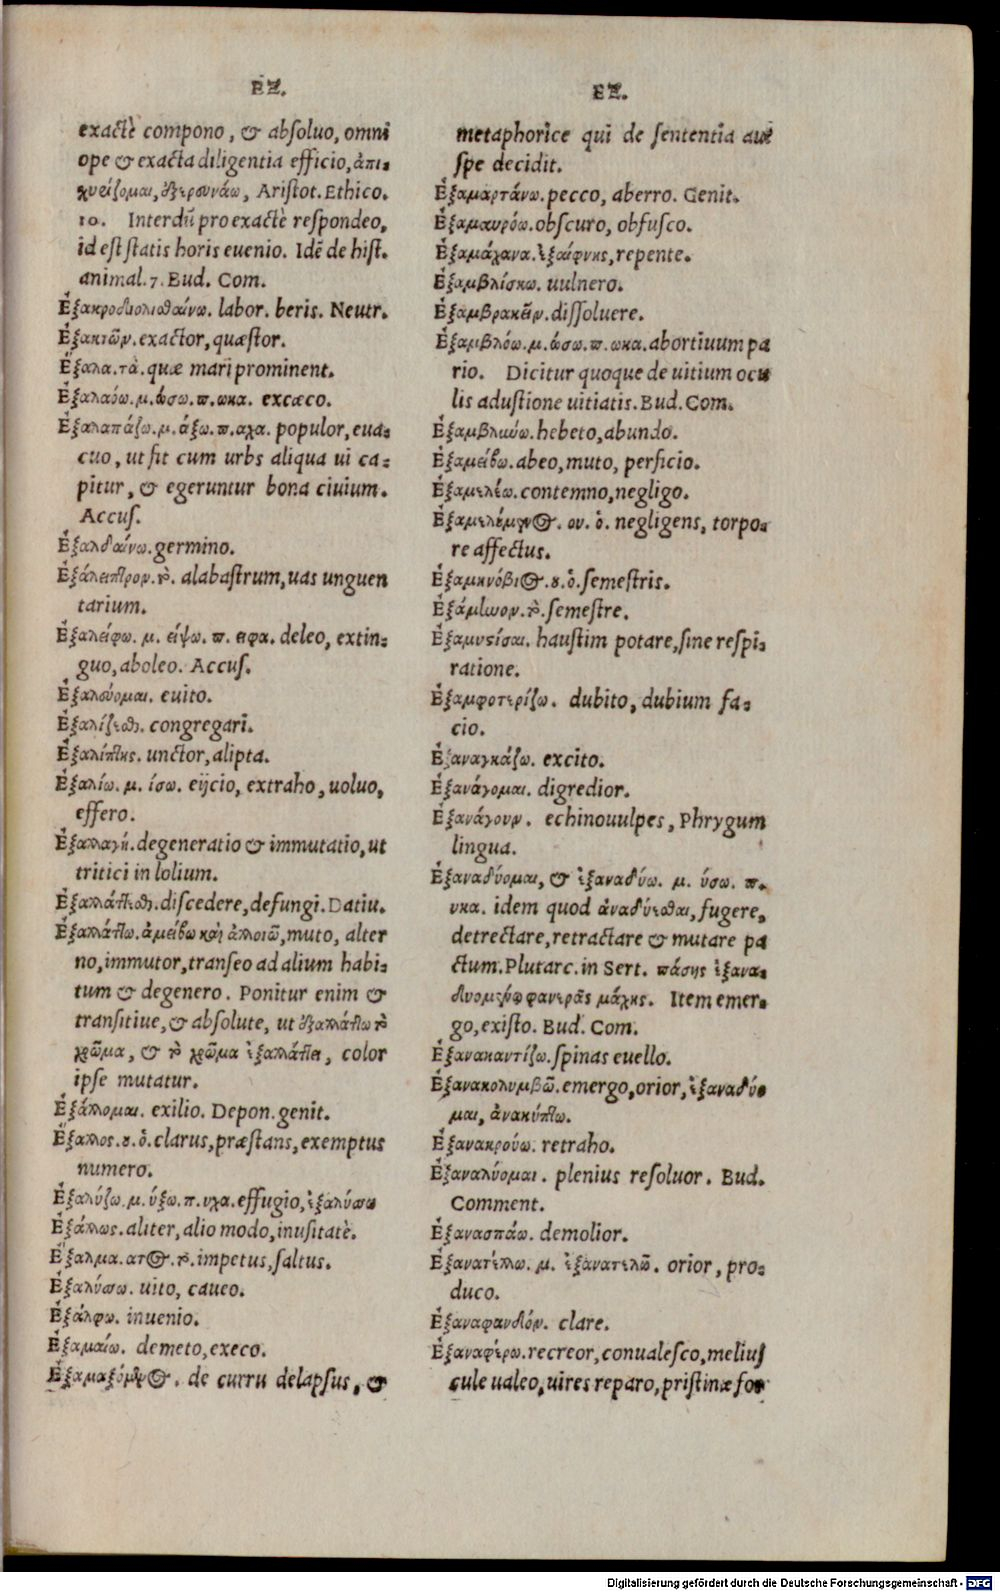 ΕΞ.
exactè compono, & absoluo, omni
ope & exacta diligentia efficio, ἀπι-
χυρίζομαι, ἐξερευνάω, Aristot. Ethico.
10. Interdū pro exactè respondeo,
id est statis horis euenio. Idē de hist.
animal. 7. Bud. Com.
Ἐξακροδιολισθαίνω. labor. beris. Neutr.
Ἐξακτῶρ. exactor, quæstor.
Ἔξαλα. τὰ. quæ mari prominent.
Ἐξαλαόω. μ. ώσω. π. ωκα. excæco.
Ἐξαλαπάζω. μ. άξω. π. αχα. populor, eua-
cuo, ut fit cum urbs aliqua ui ca-
pitur, & egeruntur bona ciuium.
Accus.
Ἐξαλδαίνω. germino.
Ἐξάλειπτρον. τὸ. alabastrum, uas unguen
tarium.
Ἐξαλείφω. μ. είψω. π. ειφα. deleo, extin-
guo, aboleo. Accus.
Ἐξαλεύομαι. euito.
Ἐξαλίζεσθαι. congregari.
Ἐξαλίπτης. unctor, alipta.
Ἐξαλίω. μ. ίσω. eijcio, extraho, uoluo,
effero.
Ἐξαλλαγή. degeneratio & immutatio, ut
tritici in lolium.
Ἐξαλλάττεσθαι. discedere, defungi. Datiu.
Ἐξαλλάττω. ἀμείβω καὶ ἀλλοιῶ, muto, alter
no, immutor, transeo ad alium habi-
tum & degenero. Ponitur enim &
transitiue, & absolute, ut ἐξαλλάττω τὸ
χρῶμα, & τὸ χρῶμα ἐξαλλάττει, color
ipse mutatur.
Ἐξάλλομαι. exilio. Depon. genit.
Ἔξαλλος. ου. ὁ. clarus, præstans, exemptus
numero.
Ἐξαλύζω. μ. ύξω. π. υχα. effugio, ἐξαλύσσω
Ἐξάλλως. aliter, alio modo, inusitatè.
Ἔξαλμα. ατος. τὸ. impetus, saltus.
Ἐξαλύσσω. uito, caueo.
Ἐξάλφω. inuenio.
Ἐξαμαίω. demeto, execo.
de curru delapsus, &
ΕΞ.
metaphorice qui de sententia aut
spe decidit.
Ἐξαμαρτάνω. pecco, aberro. Genit.
Ἐξαμαυρόω. obscuro, obfusco.
Ἐξαμάχανα. ἐξαίφνης, repente.
Ἐξαμβλίσκω. uulnero.
Ἐξαμβρακεῖν. dissoluere.
Ἐξαμβλόω. μ. ώσω. π. ωκα. abortiuum pa
rio. Dicitur quoque de uitium ocu
lis adustione uitiatis. Bud. Com.
Ἐξαμβλύω. hebeto, abundo.
Ἐξαμείβω. abeo, muto, perficio.
Ἐξαμελέω. contemno, negligo.
Ἐξαμελέμενος. ου. ὁ. negligens, torpo-
re affectus.
Ἐξαμηνόβιος. ου. ὁ. semestris.
Ἐξάμηνον. τὸ. semestre.
Ἐξαμυστίσαι. haustim potare, sine respi-
ratione.
Ἐξαμφοτερίζω. dubito, dubium fa-
cio.
Ἐξαναγκάζω. excito.
Ἐξανάγομαι. digredior.
Ἐξανάγουν. echinouulpes, Phrygum
lingua.
Ἐξαναδύομαι, & ἐξαναδύω. μ. ύσω. π.
υκα. idem quod ἀναδύεσθαι, fugere,
detrectare, retractare & mutare pa
ctum. Plutarc. in Sert. πάσης ἐξανα-
δυομένου φανερᾶς μάχης. Item emer-
go, existo. Bud. Com.
Ἐξανακαντίζω. spinas euello.
Ἐξανακολυμβῶ. emergo, orior, ἐξαναδύο
μαι, ἀνακύπτω.
Ἐξανακρούω. retraho.
Ἐξαναλύομαι. plenius resoluor. Bud.
Comment.
Ἐξανασπάω. demolior.
Ἐξανατέλλω. μ. ἐξανατελῶ. orior, pro-
duco.
Ἐξαναφανδόν. clare.
Ἐξαναφέρω. recreor, conualesco, melius
cule ualeo, uires reparo, pristinæ for
Digitalisierung gefördert durch die Deutsche Forschungsgemeinschaft - DFG